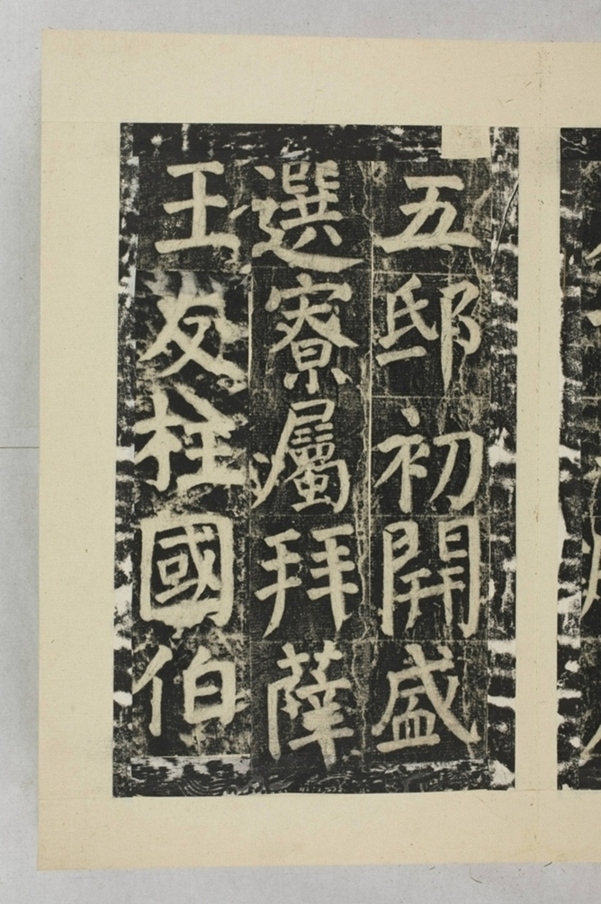 五邸初開盛
選寮屬拜薛
王友柱國伯